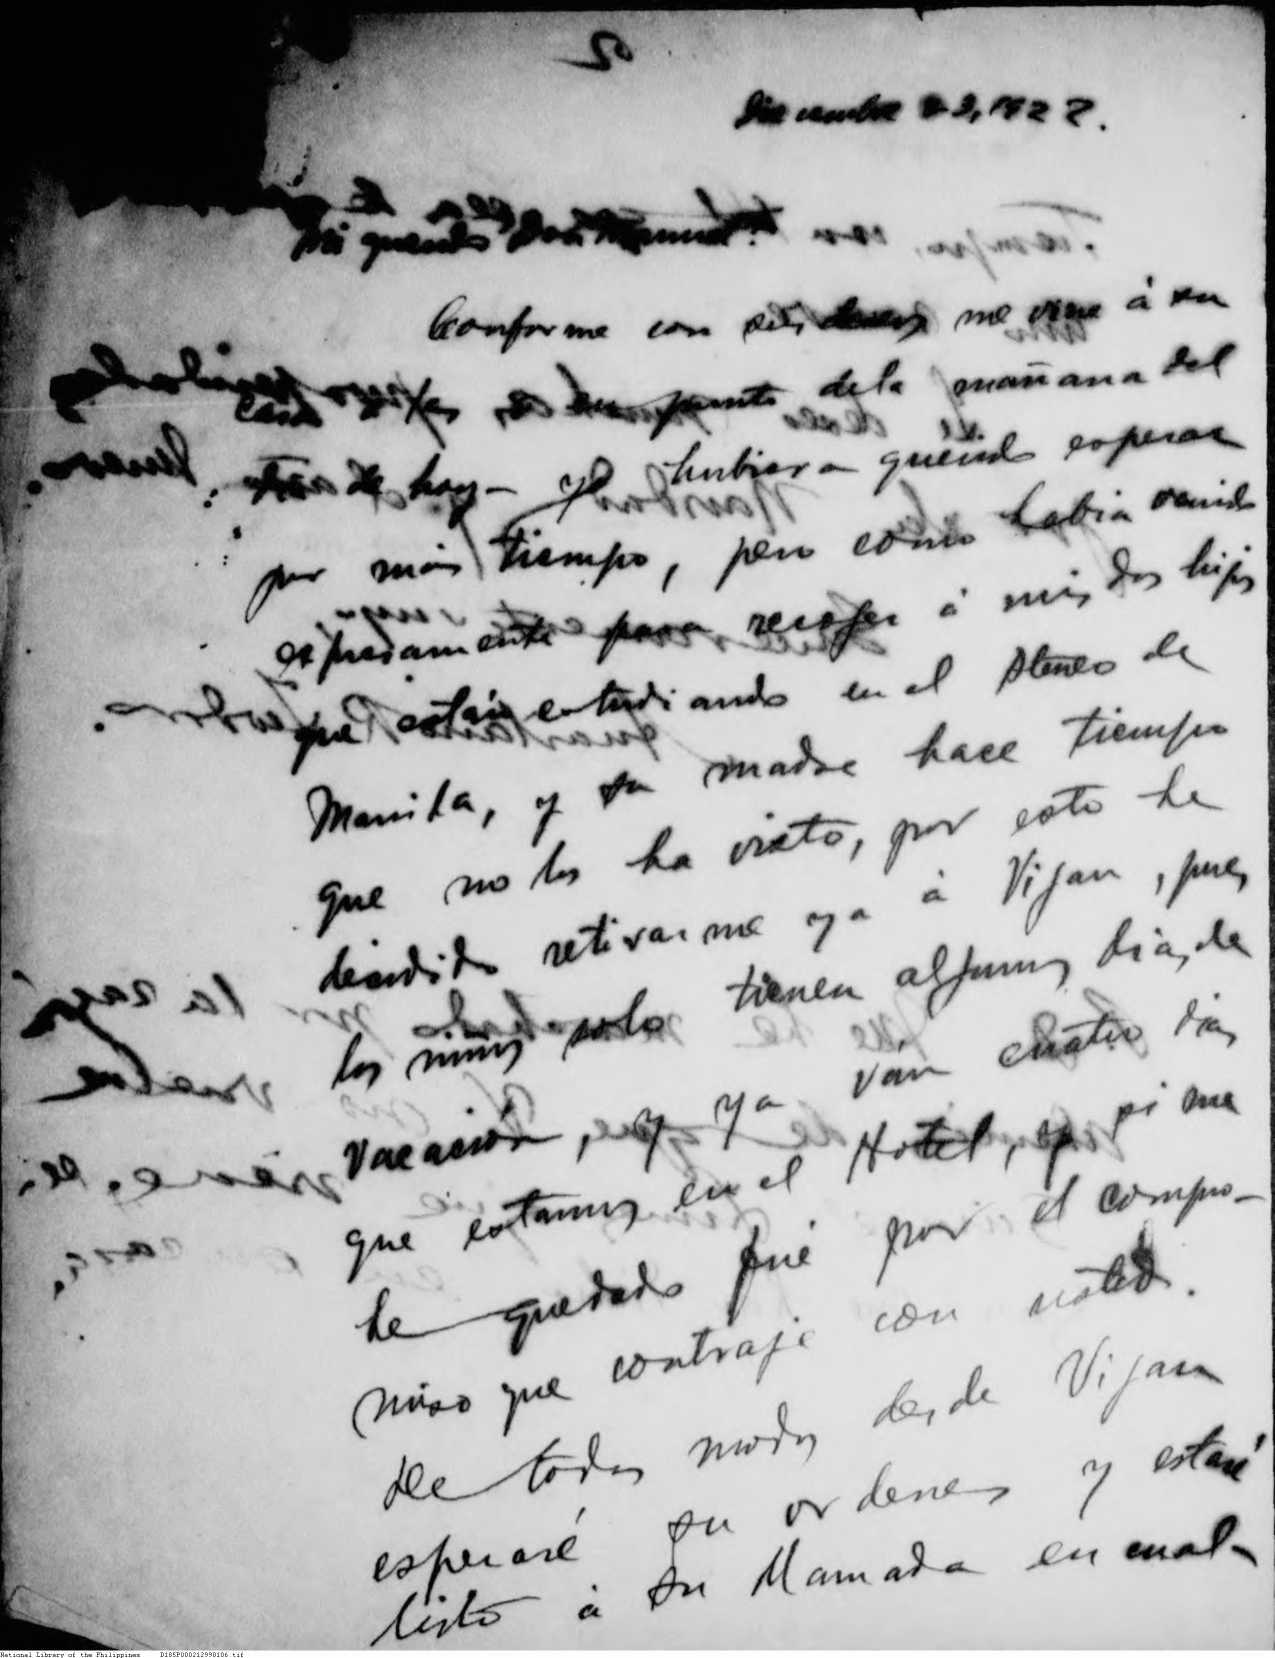 Diciembre 23, 1922.
Mi querido Don Manuel:
Conforme con sus deseos me vine á su
casa en punto de la mañana del
de hoy - yo hubiera querido esperar
por más tiempo, pero como habia venido
expresamente para recoger á mis dos hijos
que están estudiando en el Ateneo de
Manila, y su madre hace tiempo
que no los ha visto, por esto he
decidido retirarme ya á Vigan, pues
los niños solo tienen algunos dias de
vacacion, y ya ván cuatro dias
que estamos en el Hotel, y si me
he quedado fué por el compro-
miso que contraje con usted.
De todos modos desde Vigan
esperaré su ordenes y estaré
listo á su llamada en cual-
National Library of the Philippines D185P000212998106.tif